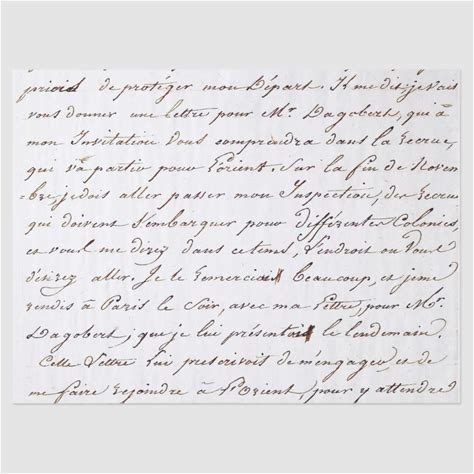 de protéger mon Départ. Il me dit; je vais
vous donner une Lettre pour Mr. Dagobert, qui à
mon Invitation Vous comprendra dans la recrue,
qui va partir pour Lorient. Sur la fin de Novem
=bre je dois aller passer mon Inspection, des recrues
qui doivent s'embarquer pour différentes Colonies,
et vous me direz dans ce tems, l'endroit ou Vous
désirez aller. Je le remerciai beaucoup, et je me
rendis à Paris le Soir, avec ma Lettre, pour Mr.
Dagobert, que je lui présentois le lendemain.
Cette Lettre lui prescrivoit de m'engager, et de
me faire rejoindre à L'Orient, pour y attendre